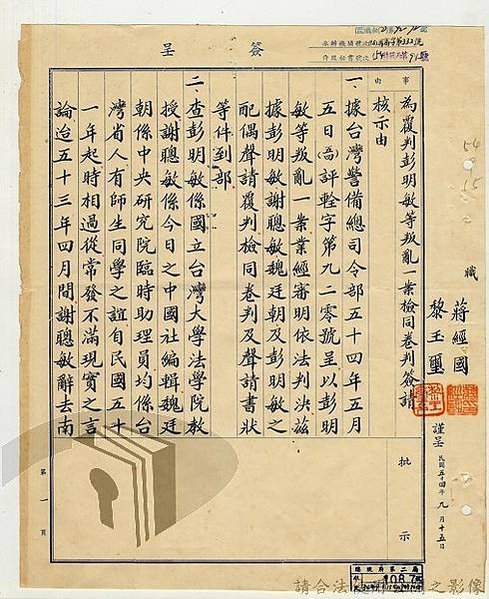 簽呈
事由
為覆判彭明敏等叛亂一案檢同卷判簽請
核示由
一、據台灣警備總司令部五十四年五月
五日(高)評輊字第九二零號呈以彭明
敏等叛亂一案業經審明依法判決茲
據彭明敏謝聰敏魏廷朝及彭明敏之
配偶聲請覆判檢同卷判及聲請書狀
等件到部
二、查彭明敏係國立台灣大學法學院教
授謝聰敏係今日之中國社編輯魏廷
朝係中央研究院臨時助理員均係台
灣省人有師生同學之誼自民國五十
一年起時相過從常發不滿現實之言
論迨五十三年四月間謝聰敏辭去南
職
蔣經國
黎玉璽
謹呈
民國五十四年九月十五日
批示
第一頁
總統府第二局
請合法使用之影像